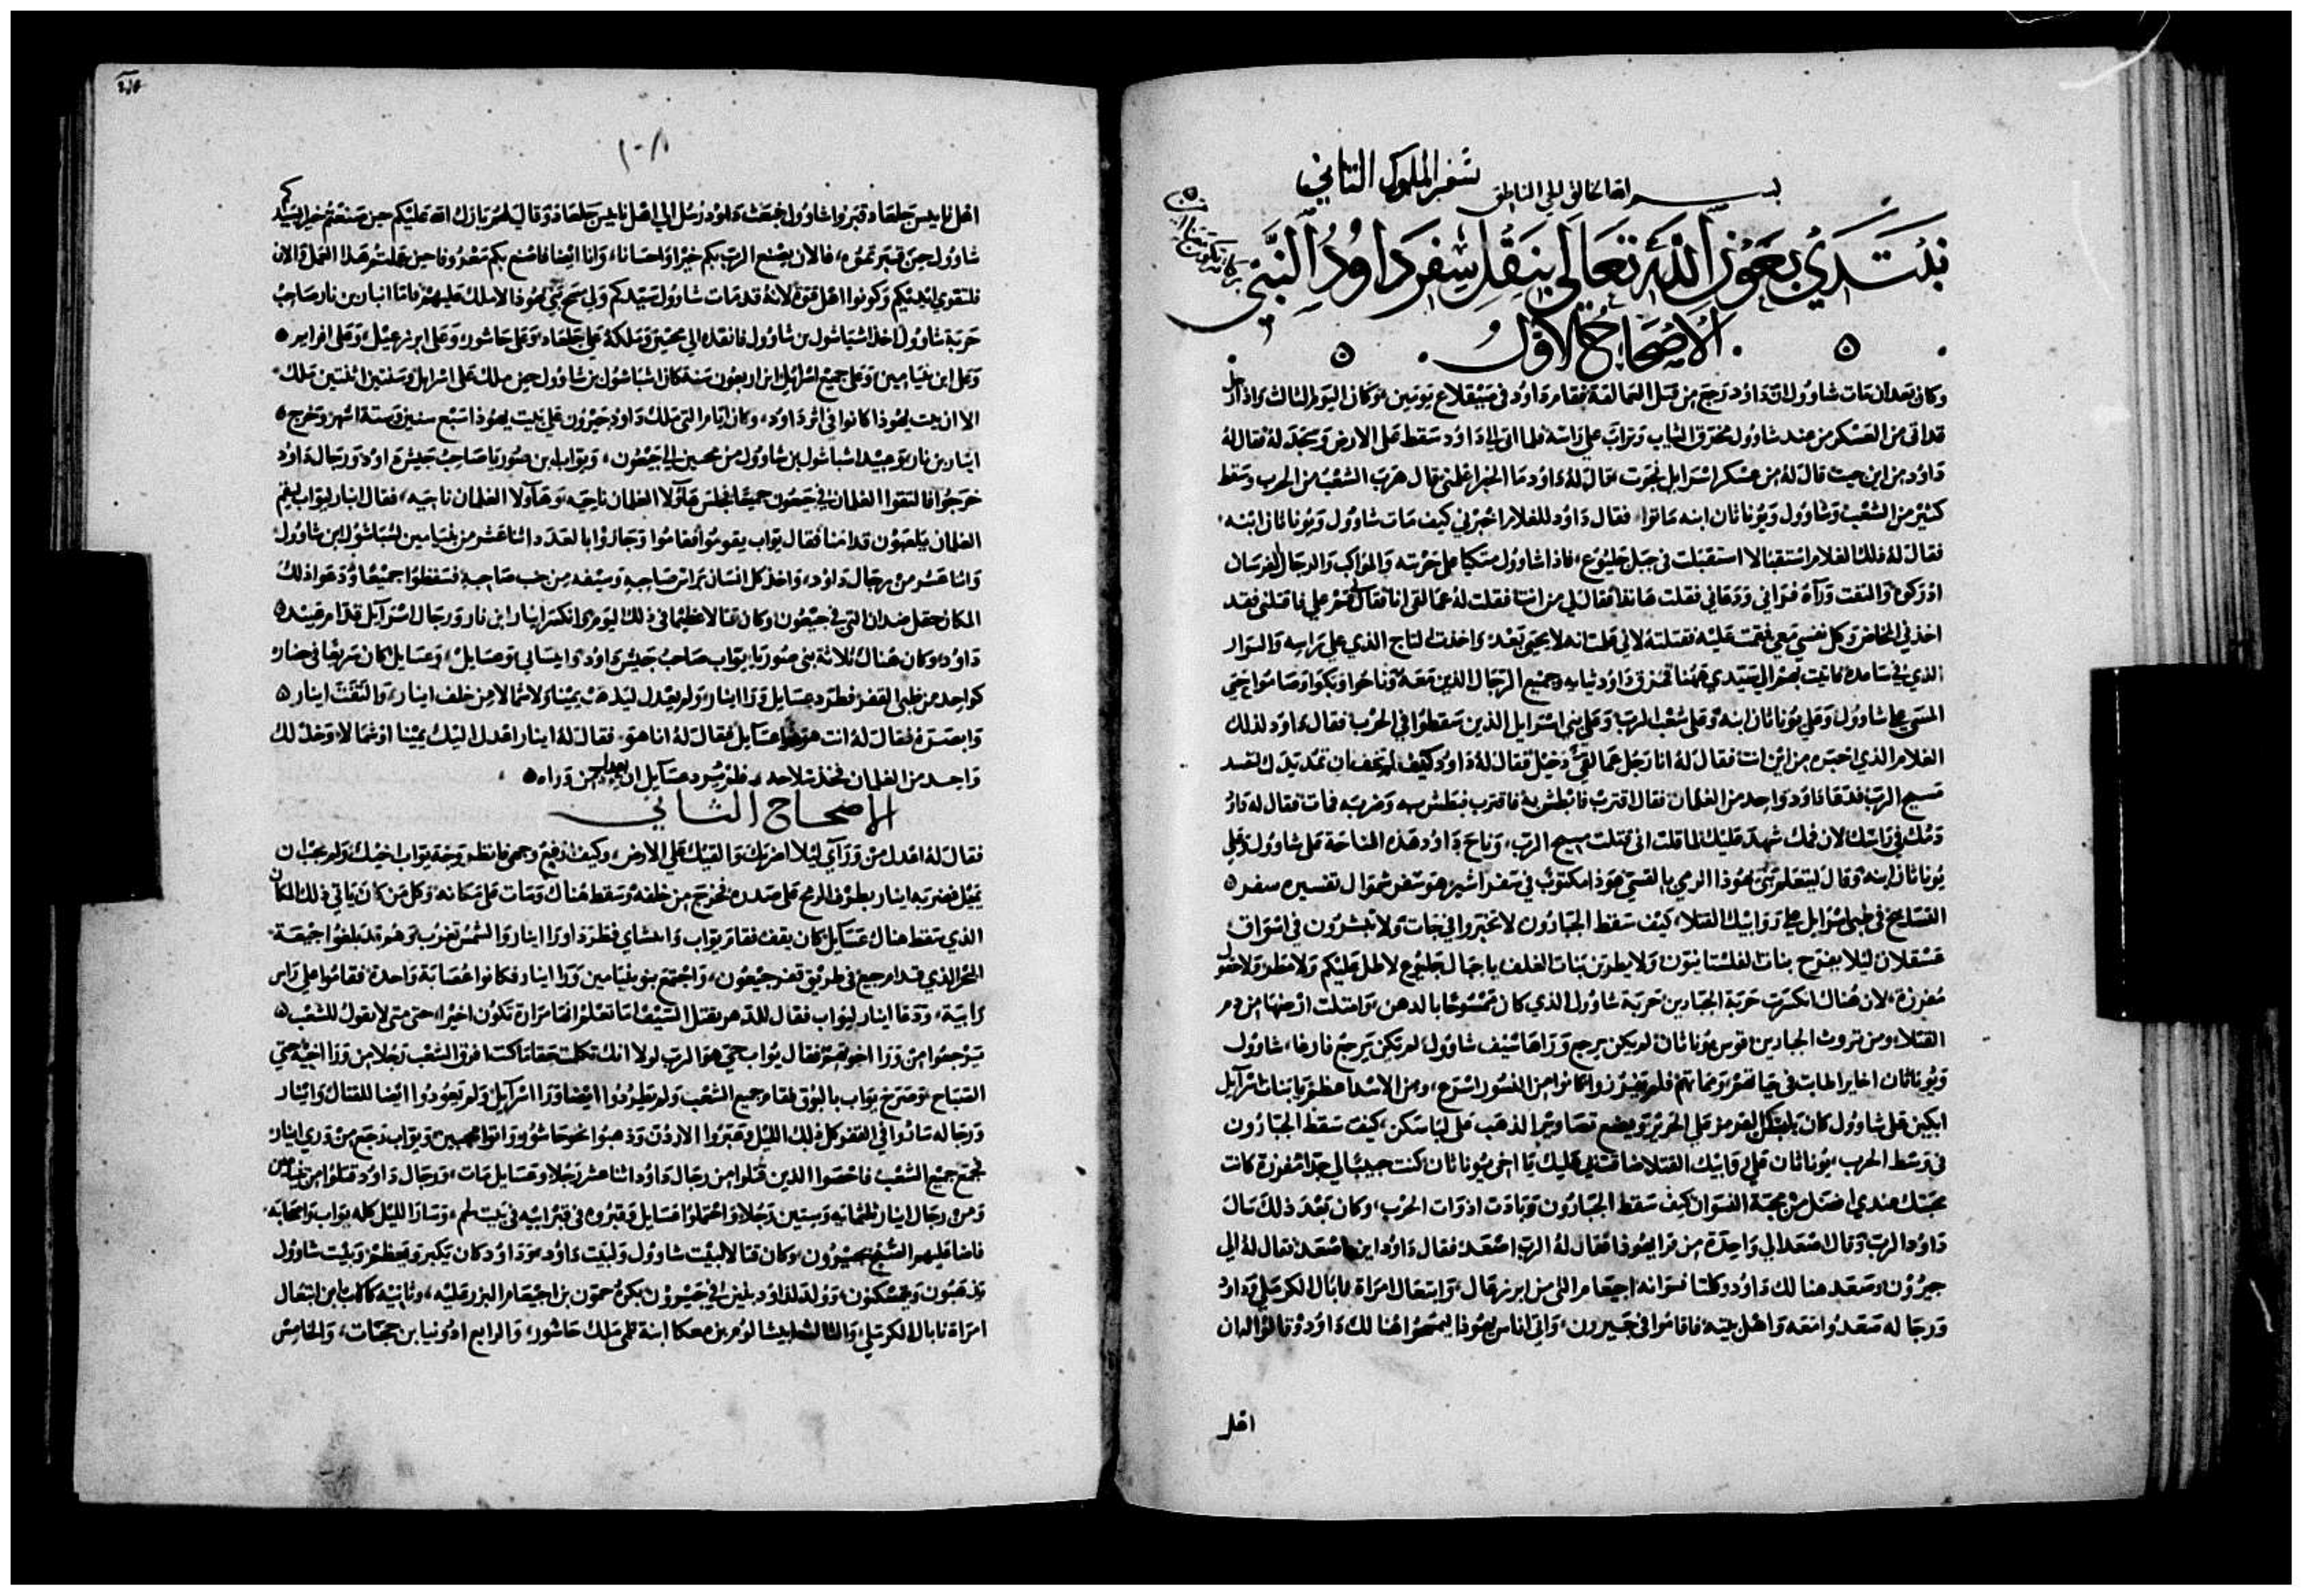 سفر الملوك الثاني
بسم الله الخالق الحي الناطق
نبتدي بعون الله تعالى بنقل سفر داوود النبي
بركاته تكون معنا امين
الاصحاح الاول
وكان بعد ان مات شاوول ان داود رجع من قتل العمالقة فقام داود في صيقلاع يومين وكان اليوم الثالث واذا رجل
قد اتى من العسكر من عند شاوول مخرق الثياب وتراب على راسه فلما اتى الى داود سقط على الارض وسجد له فقال له
داود من اين جيت قال له من عسكر اسرايل نجوت فقال له داود ما الخبر اعلمني فقال هرب الشعب من الحرب وسقط
كثير من الشعب وشاوول ويوناثان ابنه ماتوا فقال داود للغلام اخبرني كيف مات شاوول ويوناثان ابنه
فقال له ذلك الغلام استقبالا استقبلت في جبل جلبوع فاذا شاوول متكيا على حربته والمراكب والرجال الفرسان
ادركوه والتفت وراه فراني ودعاني فقلت هانذا فقال لي من انت فقلت له عمالقي انا فقال قم علي فاقتلني فقد
اخذني المخاض وكل نفسي معي فقمت عليه فقتلته لاني علمت انه لا يحيى بعد واخذت التاج الذي على راسه والسوار
الذي في ساعده فاتيت بهم الى سيدي ههنا فخرق داود ثيابه وجميع الرجال الذين معه وناحوا وبكوا وصاموا حتى
المسى على شاوول وعلى يوناثان ابنه وعلى شعب الرب وعلى بني اسرايل الذين سقطوا في الحرب فقال داود لذلك
الغلام الذي اخبره من اين انت فقال له انا رجل عمالقي دخيل فقال له داود كيف لم تخف ان تمد يدك لتفسد
مسيح الرب فدعا داود واحد من الغلمان فقال اقترب فابطش به فاقترب فبطش به وضربه فمات فقال له داود
دمك في راسك لان فمك شهد عليك لما قلت اني قتلت مسيح الرب، وناح داود هذه المناحة على شاوول وعلى
يوناثان ابنه وقال ليتعلم بني يهوذا الرمي بالقسي هوذا مكتوب في سفر اشير هو سفر شموال تفسيره سفر
التسابيح في طبى اسرايل على روابيك القتلاء كيف سقط الجبارون لا تخبروا في جات ولا تبشرون في اسواق
عسقلان ليلا يفرح بنات الفلستانيون ولا يطربن بنات الغلف يا جبال جلبوع لا طل عليكم ولا مطر ولا حقول
مفرزة لان هناك انكسرت حربة الجبارين حربة شاوول الذي كان ممسوحا بالدهن وامتلت ارضها من دم
القتلاء ومن ثروت الجبارين قوس يوناثان لم يكن يرجع ورا هاسيف شاوول لم يكن يرجع فارغا، شاوول
ويوناثان اخاير المابت في حياتهم ومماتهم فلم يفترزوا كانوا من النسور اسرع، ومن الاسد اعظم يا بنات اسرآيل
ابكين على شاوول كان يلبسكن القرمز على الحرير ويضع تصاوير الذهب على لباسكن، كيف سقط الجبارون
في وسط الحرب، يوناثان على روابيك القتلا ضاقت لي عليك يا اخي يوناثان كنت حبيب الي جدا مفرزة كانت
محبتك عندي افضل من محبة النسوان كيف سقط الجبارون وبادت ادوات الحرب، وكان بعد ذلك سال
داود الرب وقال اصعد الى واحدة من قرا يهوذا فقال له الرب اصعد فقال داود اين اصعد فقال له الى
حبرون، وصعد هنالك داود وكلتا نسوانه اجيعام التي من ايزرعال، وابتغال امراة نابال الكرملي وداود
ورجاله صعدوا معه واهل بيته فاقاموا في حبرون، واتى اناس يهوذا يمسحوا هنالك داود وقالوا له ان
اهل
اهل نابيس جلعاد قبروا شاوول فبعث داود رسل الى اهل نابيس جلعاد وقال لهم يبارك الله عليكم حين صنعتم خير لسيدكم
شاوول حين قبرتموه، فالان يصنع الرب بكم خيرا واحسانا، وانا ايضا فاصنع بكم معروفا حين عملتم هذا العمل والان
فلتقوي ايديكم وكونوا اهل قوة لانه قد مات شاوول سيدكم واي مسح بني يهوذا لاملك عليهم فاما ابنار بن نار صاحب
حربة شاوول اخذ اشباشول بن شاوول فانقله الى محنيم وملكه على جلعاد وعلى حاشور وعلى ايزرعيل وعلى افرايم
وعلى ابن بنيامين وعلى جميع اسرايل ابن اربعون سنة كان اشباشول بن شاوول حين ملك على اسرايل وسنتين اثنتين ملك
الا ان بيت يهوذا كانوا في اثر داود، وكان ايام التي ملك داود بحبرون على بيت يهوذا سبع سنين وستة اشهر وخرج
ابنار بن نار وعبيد اشباشول بن شاوول من محنيم الى جبعون، ويواب ابن صوريا صاحب جيش داود ورجال داود
خرجوا فالتقوا الغلمان في جبعون جميعا فجلس هاولا الغلمان ناحيه وهاولا الغلمان ناحيه، فقال ابنار ليواب ليقم
الغلمان يلعبون قدامنا فقال يواب يقوموا فقاموا وجازوا بالعدد اثناعشر من بنيامين لشباشول ابن شاوول
واثناعشر من رجال داود، واخذ كل انسان براس صاحبه وسيفه من جنب صاحبه فسقطوا جميعا ودعوا ذلك
المكان حقل صدان التي في جبعون وكان قتالا عظيما في ذلك اليوم وانكسر ابنار ابن نار ورجال اسرآيل قدام عبيد
داود، وكان هناك ثلاثة بني صوريا يواب صاحب جيش داود وابساي وعسايل، وعسايل كان سريعا في حضار
كواحد من ظبى القفر فطرد عسايل ورا ابنار، ولم يعدل ليذهب يمينا ولا شمالا من خلف ابنار، والتفت ابنار
وابصره فقال له انت هو عسآيل فقال له انا هو، فقال له ابنار اعدل اليك يمينا او شمالا وخذ لك
واحد من الغلمان فخذ سلاحه فلم يريد عسآيل ان يعدل من وراه
الاصحاح الثاني
فقال له اعدل من ورآي ليلا اضربك والقيك على الارض، وكيف ارفع وجهي فانظر وجه يواب اخيك ولم يحب ان
يميل فضربه ابنار بطرف الرمح على صدره فخرج من خلفه وسقط هناك ومات على مكانه وكل من كان ياتي ذلك المكان
الذي سقط هناك عسايل كان يقف فقام يواب وابشاي فطرد اورا ابنار والشمس تغرب وهو قد بلغوا جبعة
الحر الذي قدام جيع في طريق قفر جبعون، واجتمع بنو بنيامين ورا ابنار فكانوا عصابة واحدة فقاموا على راس
رابية، ودعا ابنار ليواب فقال للدهر يقتل السيف اما تعلم انها مرارة تكون اخيرا، حتى متى لا يقول للشعب
يرجعوا من ورا اخوتهم فقال يواب حي هو الرب لولا انك تكلمت حقا ما كنت افرق الشعب رجلا من ورا اخيه حتى
الصباح، وصرخ يواب بالبوق فقام جميع الشعب ولم يطردوا ايضا ورا اسرآيل ولم يعودوا ايضا للقتال وابنار
ورجاله ساروا في القفر كل ذلك الليل وعبروا الاردن وذهبوا نحو حاشور واتوا محيين ويواب رجع من ورى ابنار
فجمع جميع الشعب فاحصوا الذين قتلوا من رجال داود اثناعشر رجلا وعسايل مات، ورجال داود قتلوا من بنيامين
ومن رجال ابنار ثلثمايه وستين رجلا واحتملوا عسايل وقبروه في قبر ابيه في بيت لحم، وسار الليل كله يواب واصحابه
فاضا عليهم الصبح بحبرون وكان قتالا لبيت شاوول ولبيت داود، وداود كان يكبر ويعظم وبيت شاوول
يذهبون ويتمسكنون وولد لداود بنين في حبرون بكره حمون بن اجيعام ايزرعليه، وثانيه كالاب ابن ابتغال
امراة نابال الكرملي، والثالث ابيشالوم بن معكا ابنة تلمى ملك حاشور، والرابع ادونيا بن حجات، والخامس